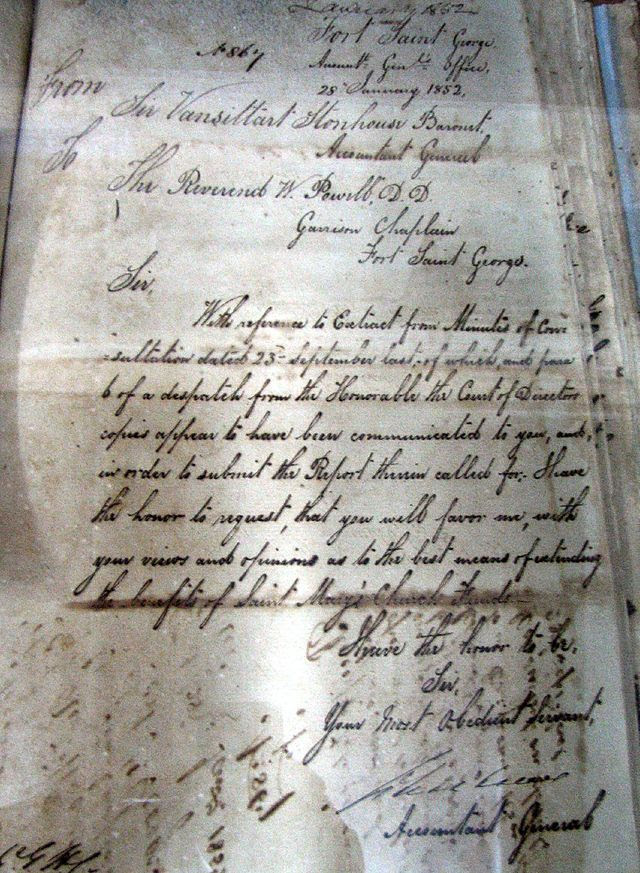 January 1852
Fort Saint George
Nº 867
Accountt. Genls. Office,
28 January 1852.
From
Sir Vansittart Stonhouse Baronet,
Accountant General
To
The Reverend W. Powell, D.D.
Garrison Chaplain
Fort Saint George.
Sir,
With reference to Extract from Minutes of Con-
-sultation dated 23rd September last, of which, and para
6 of a despatch from the Honorable the Court of Directors
copies appear to have been communicated to you, and,
in order to submit the Report therein called for, I have
the honor to request, that you will favor me, with
your views and opinions as to the best means of extending
the benefits of Saint Mary's Church Funds.
I have the honor to be,
Sir,
Your Most Obedient Servant,
Accountant General